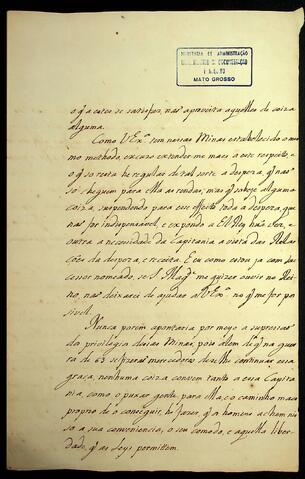 SECRETARIA DE ADMINISTRAÇÃO
MATO GROSSO
o q̃ a estes se satisfaz, nas aproveita aquelles de coiza
alguma.
Como V Exª tem nessas Minas estabelecido o mes-
mo methodo, escuzo extenderme mais a este respeito, e
o q̃ só resta he regular de tal sorte a despeza, q̃ nas
só cheguem para Ella as rendas, mas q̃ sobeje alguma
coiza, suspendendo para esse effeito toda a despeza, que
nas for indispensavel, e expondo a El Rey húa vez, e
outra a necessidade da Capitania, a vista das Rela-
ções da despeza, e receita. E eu como estou ja com suc-
cessor nomeado, se S. Magᵉ me quizer ouvir no Rei-
no, nas deixarei de ajudar a V Exª no q̃ me for pos-
sivel.
Nunca porem apontaria por meyo a supressaõ
do privilegio dessas Minas, pois alem de q̃ na guer-
ra de 63 se fizeraõ merecedores de se lhe continuar essa
graça, nenhuma coiza convem tanto a essa Capita-
nia, como o puxar gente para Ella, e o caminho mais
proprio de o conseguir, he fazer, q̃ os homens achem nis-
so a sua conveniencia, o seu comodo, e aquella liber-
dade, q̃ as Leys permittem.